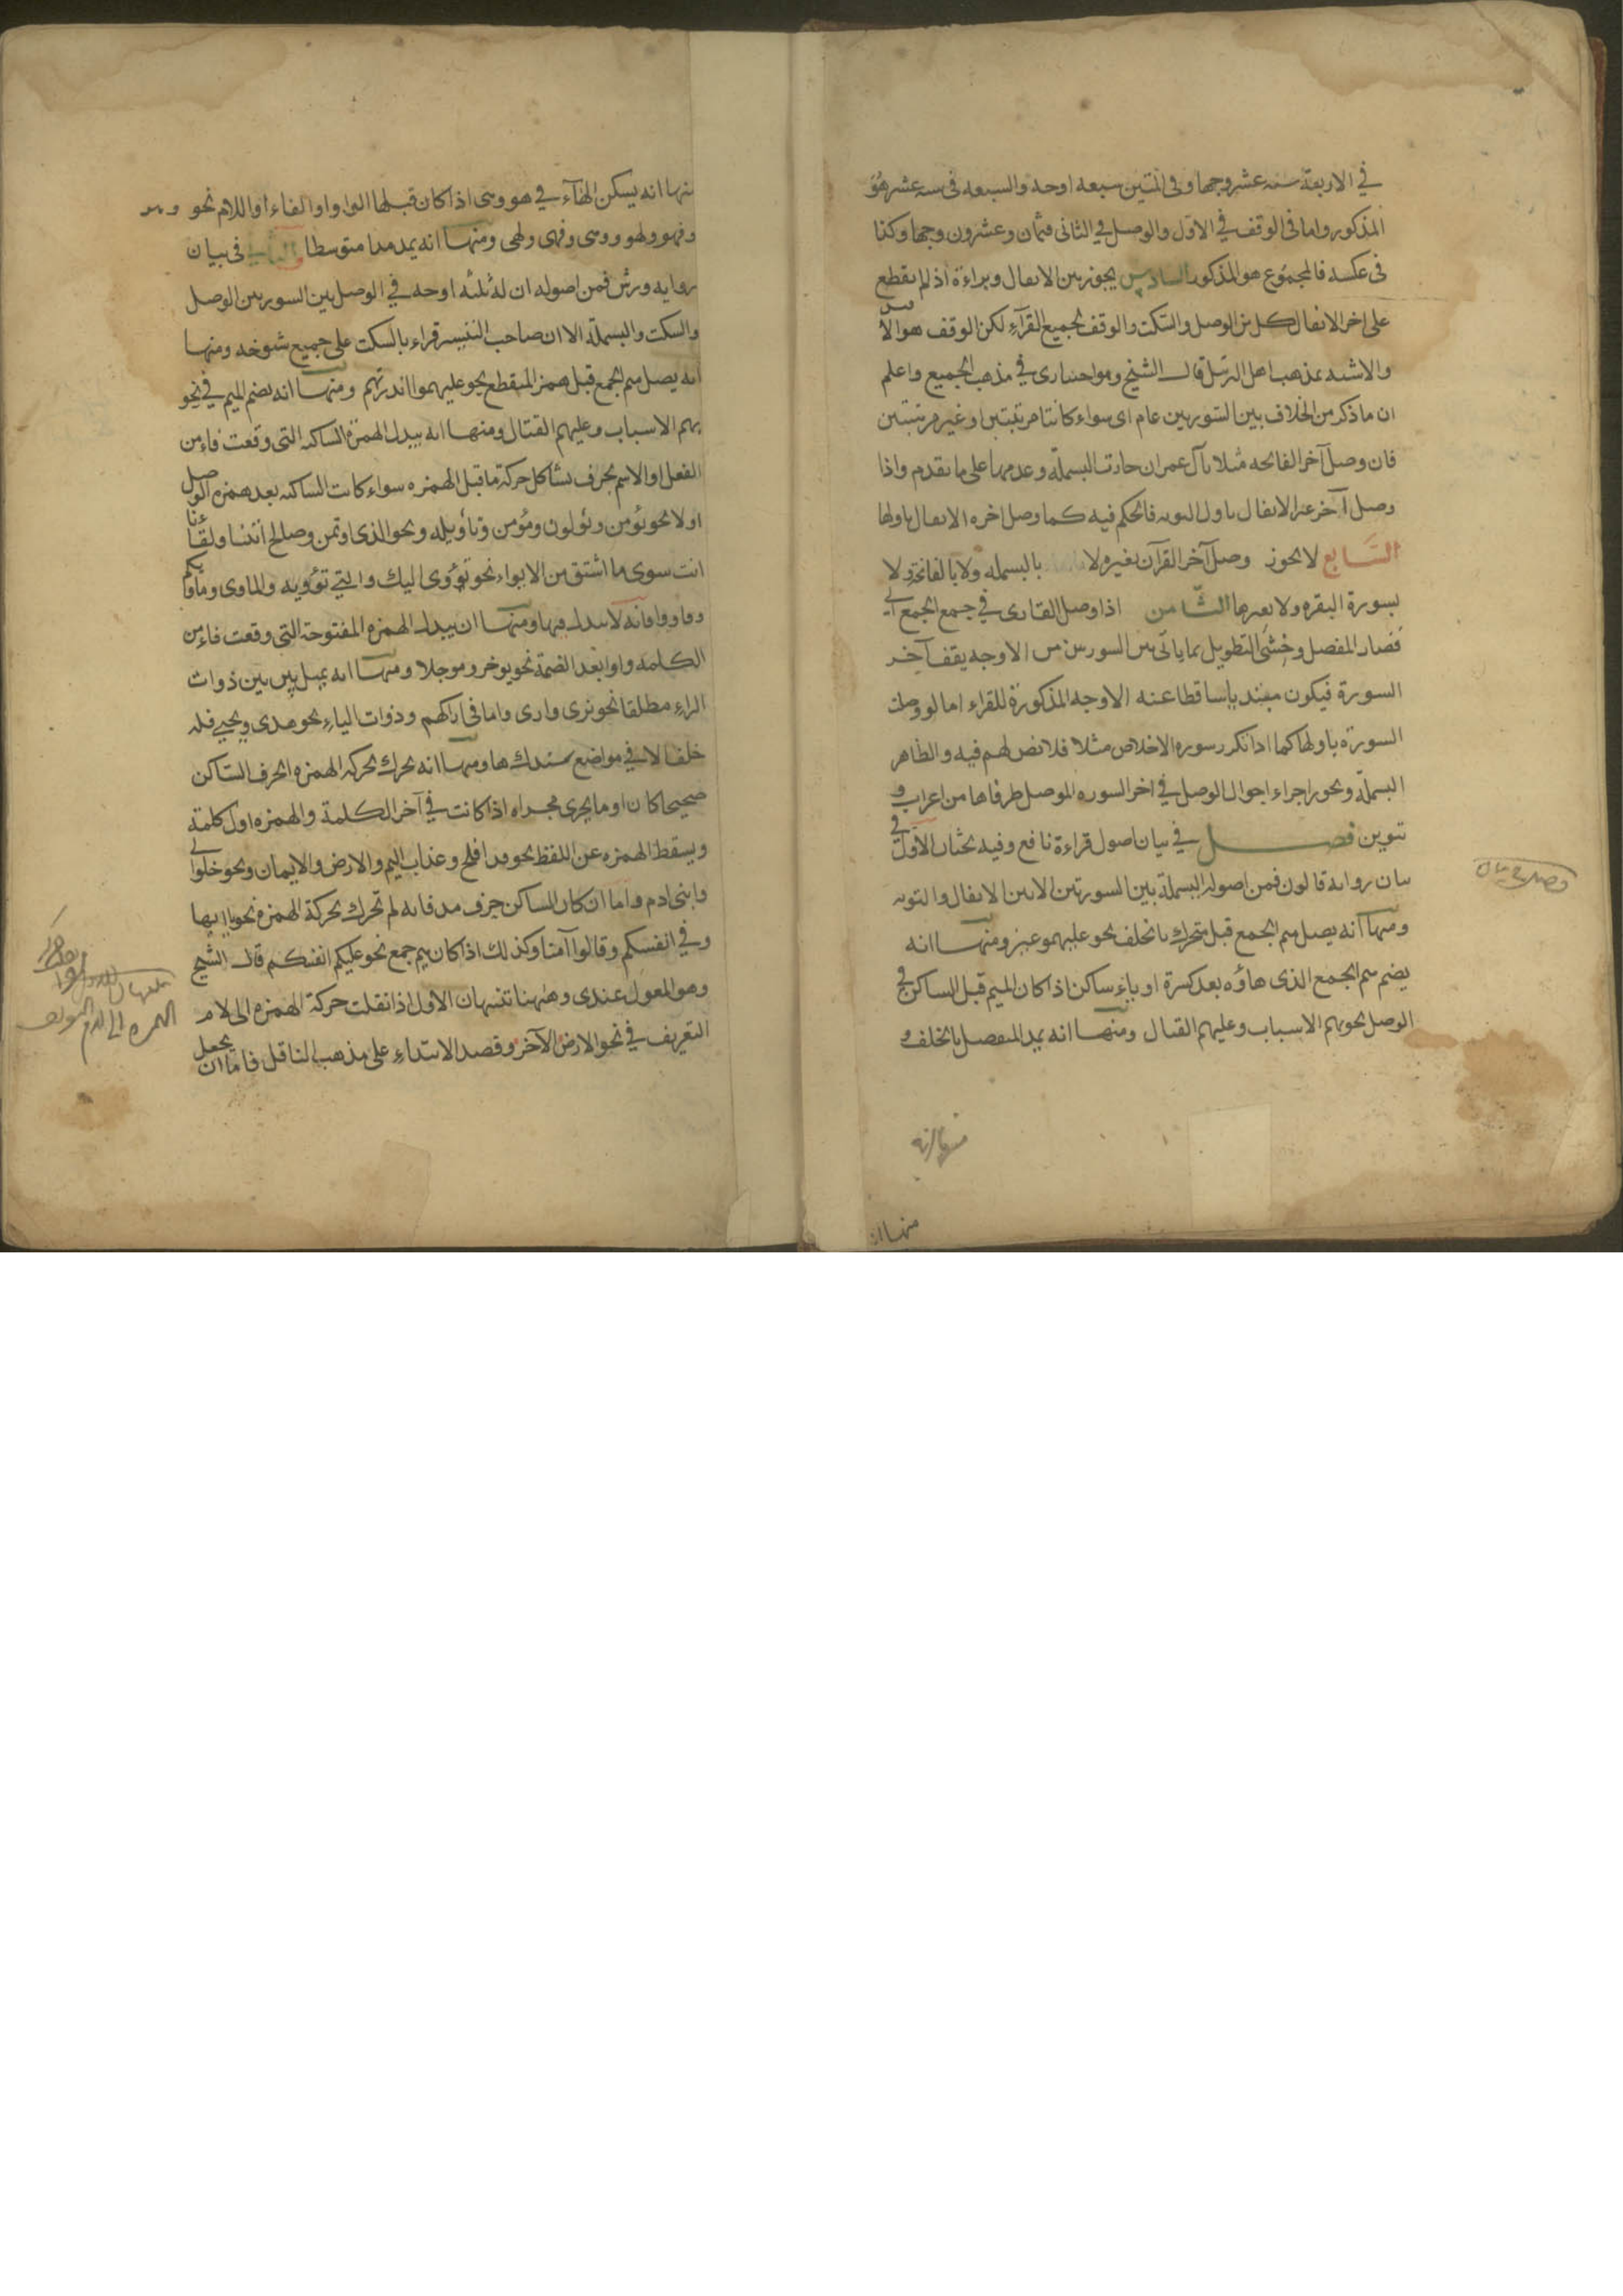 في الاربعة ستة عشر وجها وفى اثنتين سبعة اوجه والسبعه فى سته عشر هو
المذكور واما فى الوقف في الاول والوصل في الثانى فثمان وعشرون وجها وكذا
فى عكسه فالمجموع هو المذكور السادس يجوز بين الانفال وبراءة اذ لم يقطع
على اخر الانفال كل من الوصل والسكت والوقف لجميع القرآء لكن الوقف هو الا
والاشبه بمذهب اهل الترتل قال الشيخ وهو اختيارى في مذهب الجميع واعلم
ان ما ذكر من الخلاف بين السورتين عام اى سواء كانتا مرتبتين او غير مرتبتين
فان وصل آخر الفاتحه مثلا بآل عمران جازت البسملة وعدمها على ما تقدم واذا
وصل آخر غير الانفال باول التوبه فالحكم فيه كما وصل اخره الانفال باولها
السابع لا يجوز وصل آخر القرآن بغيره لا بالبسمله ولا بالفاتحة ولا
بسورة البقره ولا بغيرها الثامن اذا وصل القارى في جمع الجمع الى
قصار المفصل وخشى التطويل بما ياتى بين السورتين من الاوجه يقف آخر
السورة فيكون مبتديا ساقطا عنه الاوجه المذكورة للقراء اما لو وصلت
السورة باولها كما اذا تكرر سوره الاخلاص مثلا فلا نص لهم فيه والظاهر
البسملة ويجوز اجراء احوال الوصل في اخر السوره الموصل طرفاها من اعراب و
تنوين فصل في بيان اصول قراءة نافع وفيه بحثان الاول في
بيان روايه قالون فمن اصوله البسملة بين السورتين الا بين الانفال والتوبه
ومنها انه يصل ميم الجمع قبل متحرك بالخلف نحو عليهمو غير ومنها انه
يضم ميم الجمع الذى هاؤه بعد كسرة او ياء ساكن اذا كان الميم قبل الساكن في
الوصل نحو بهم الاسباب وعليهم القتال ومنها انه يمد المنفصل بالخلف و
منها انه
منها انه يسكن الهآء في هو وهى اذا كان قبلها الواو او الفاء او اللام نحو وهو
وفهو ولهو وهى وفهى ولهى ومنها انه يمد مدا متوسطا والثانى فى بيان
روايه ورش فمن اصوله ان له ثلثه اوجه في الوصل بين السورتين الوصل
والسكت والبسملة الا ان صاحب التيسير قراء بالسكت على جميع شيوخه ومنها
انه يصل ميم الجمع قبل همز المنقطع نحو عليهموا انذرتهم ومنها انه يضم الميم في نحو
بهم الاسباب وعليهم القتال ومنها انه يبدل الهمزة الساكنه التى وقعت فاء من
الفعل او الاسم بحرف يشاكل حركة ما قبل الهمزه سواء كانت الساكنه بعد همزه الوصل
او لا نحو يؤمن ويؤلون ومؤمن وتأويله ونحو الذى اوتمن وصالح ائتنا ولقآنا
انت سوى ما اشتق من الايواء نحو تؤوى اليك والتي تؤويه والماوى وماويكم
وفاووا فانه لا يبدل فيها ومنها ان يبدل الهمزه المفتوحة التى وقعت فاء من
الكلمه واوا بعد الضمة نحو يوخر وموجلا ومنها انه يميل بين بين ذوات
الراء مطلقا نحو نرى وارى واما فى اراكهم وذوات الياء نحو هدى ويحيى فله
خلف الا في مواضع سنذكرها ومنها انه يحرك بحركه الهمزه الحرف الساكن
صحيحا كان او ما يجرى مجراه اذا كانت في آخر الكلمة والهمزه اول كلمة
ويسقط الهمزه عن اللفظ نحو قد افلح وعذاب اليم والارض والايمان ونحو خلوا الى
وابنى ادم واما ان كان الساكن حرف مد فانه لم تحرك بحركة الهمزة نحو يا ايها
وفي انفسكم وقالوا آمنا وكذلك اذا كان ميم جمع نحو عليكم انفسكم قال الشيخ
وهو المعول عندى وههنا تنبيهان الاول اذا نقلت حركة الهمزه الى لام
التعريف في نحو الارض الآخر وقصد الابتداء على مذهب الناقل فاما ان يجعل